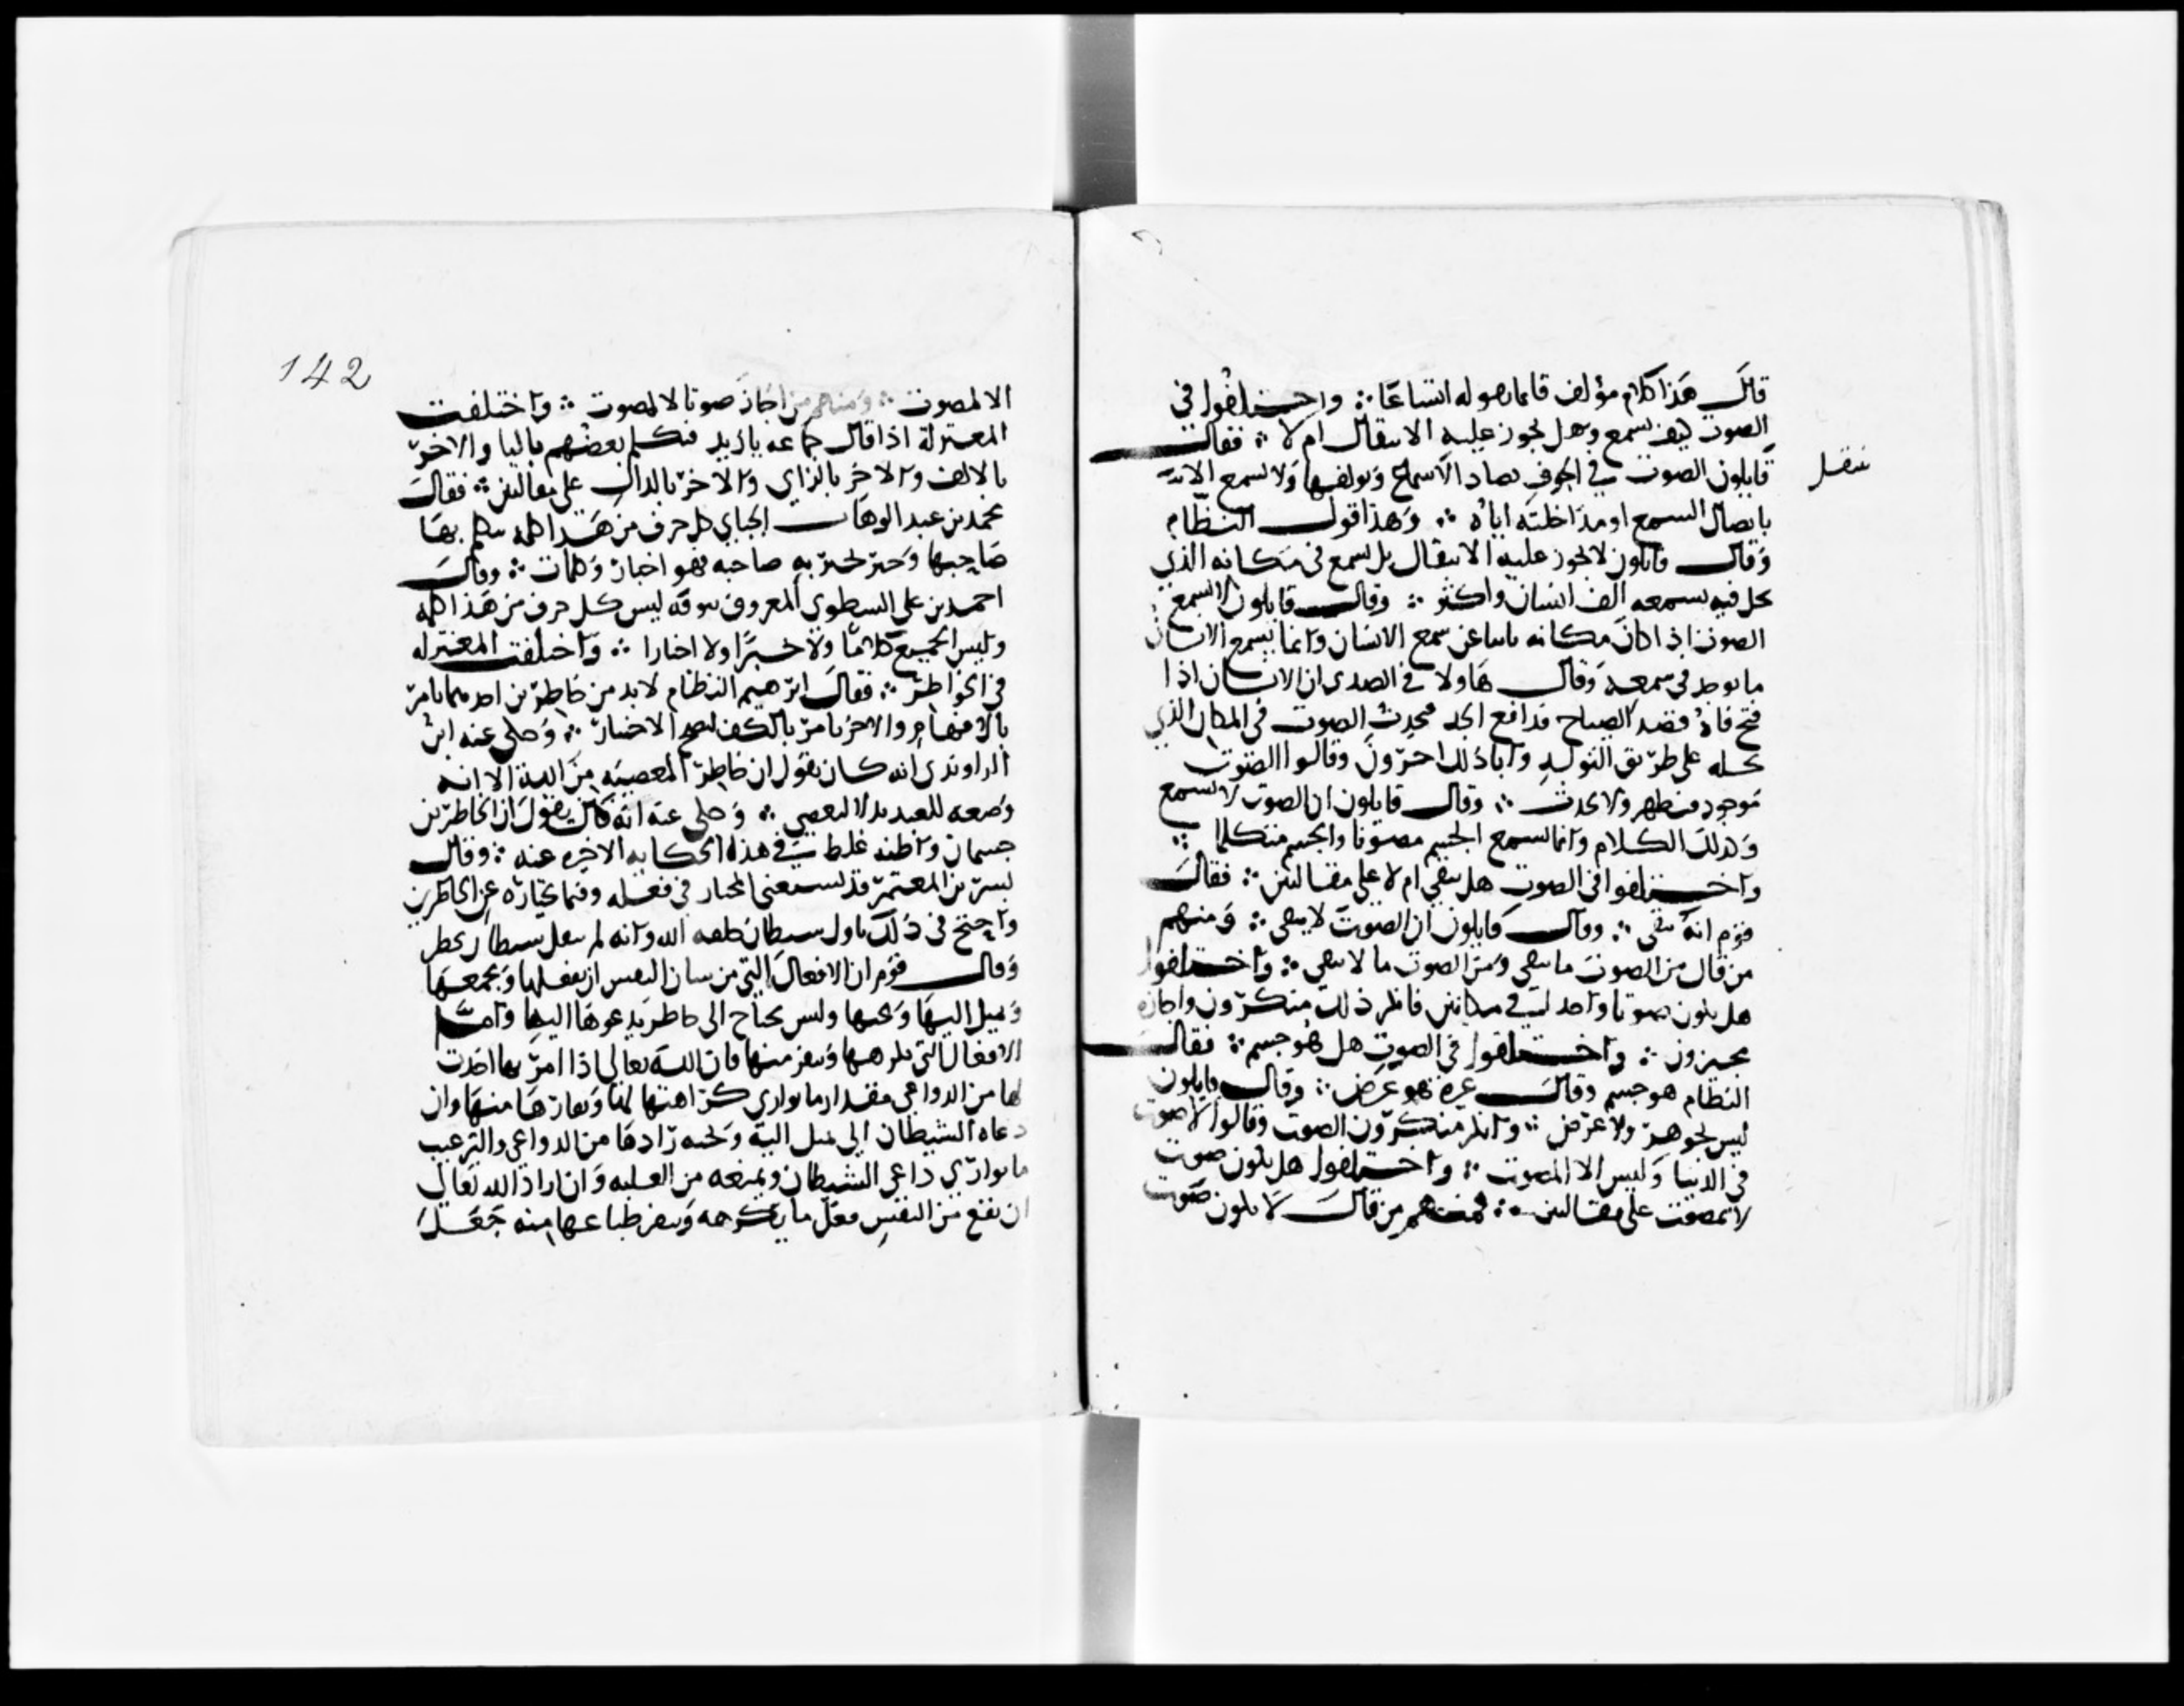 قال هذا كلام مؤلف قائما يصوله اتساعا ؞ واختلفوا في
الصوت كيف يسمع وهل يجوز عليه الانتقال ام لا ؞ فقال
قايلون الصوت في الجوف يصاد الاسماع ويولفها ولا يسمع الا
ينتقل
باتصال السمع او مداخلته اياه ؞ وهذا قول النظام
وقال قايلون لا يجوز عليه الانتقال بل يسمع في مكانه الذي
يحل فيه يسمعه الف انسان واكثر ؞ وقال قايلون لا يسمع
الصوت اذا كان مكانه باينا عن سمع الانسان وانما يسمع الانسان
ما يوجد في سمعه وقال هاولا في الصدى ان الانسان اذا
فتح فاه فقصد الصياح فدافع الجو فيحدث الصوت في المكان الذي
يحله على طريق التولد وابا ذلك اخرون وقالوا الصوت
موجود فيظهر ولا يحدث ؞ وقال قايلون ان الصوت لا يسمع
وكذلك الكلام وانما يسمع الجسم مصوتا والجسم متكلما ؞
واختلفوا في الصوت هل يبقى ام لا على مقالتين ؞ فقال
قوم انه يبقى ؞ وقال قايلون ان الصوت لا يبقى ؞ ومنهم
من قال من الصوت ما يبقى ومن الصوت ما لا يبقى ؞ واختلفوا
هل يكون صوتا واحد في مكانين فانكر ذلك منكرون واجازه
مجيزون ؞ واختلفوا في الصوت هل هو جسم ؞ فقال
النظام هو جسم وقال غيره هو عرض ؞ وقال قايلون
ليس بجوهر ولا عرض ؞ وانكر منكرون الصوت وقالوا لا صوت
في الدنيا وليس الا المصوت ؞ واختلفوا هل يكون صوت
لا لمصوت على مقالتين ؞ فمنهم من قال لا يكون صوت
142
الا لمصوت ؞ ومنهم من اجاز صوتا لا لمصوت ؞ واختلفت
المعتزلة اذا قال جماعه يا زيد فتكلم بعضهم باليا والاخر
بالالف والاخر بالزاي والاخر بالدال على مقالتين ؞ فقال
محمد بن عبد الوهاب الجباي كل حرف من هذا كلمه تكلم بها
صاحبها وخبر يخبر به صاحبه فهو اخبار وكلمات ؞ وقال
احمد بن علي الشطوي المعروف بيوقه ليس كل حرف من هذا كلمه
وليس الجميع كلاما ولا خبرا ولا اخبارا ؞ واختلفت المعتزله
في الخواطر ؞ فقال ابرهيم النظام لا بد من خاطرين احدهما يامر
بالاقدام والاخر يامر بالكف ليصح الاختيار ؞ وحكى عنه ابن
الراوندي انه كان يقول ان خاطر المعصيه من الله الا انه
وضعه للتعديل لا ليعصى ؞ وحكى عنه انه كان يقول ان الخاطرين
جسمان واظنه غلط في هذه الحكايه الاخيره عنه ؞ وقال
بشر بن المعتمر قد يستغني المختار في فعله وفيما يختاره عن الخاطرين
واحتج في ذلك باول شيطان خلقه الله وانه لم ينقل شيطان يخطر
وقال قوم ان الافعال التي من شان النفس ان تفعلها وتجمعها
وتميل اليها وتحبها وليس يحتاج الى خاطر يدعوها اليها واما
الافعال التي تكرهها وتنفر منها فان الله تعالى اذا امر بها احدث
لها من الدواعي مقدار ما يوازي كراهتها لها ونفارها منها وان
دعاه الشيطان الى ميل اليه وتحبه زادها من الدواعي والترغيب
ما يوازي داعي الشيطان ويمنعه من الغلبه وان اراد الله تعالى
ان يقع من النفس فعل ما تكرهه وتنفر طباعها منه جعل